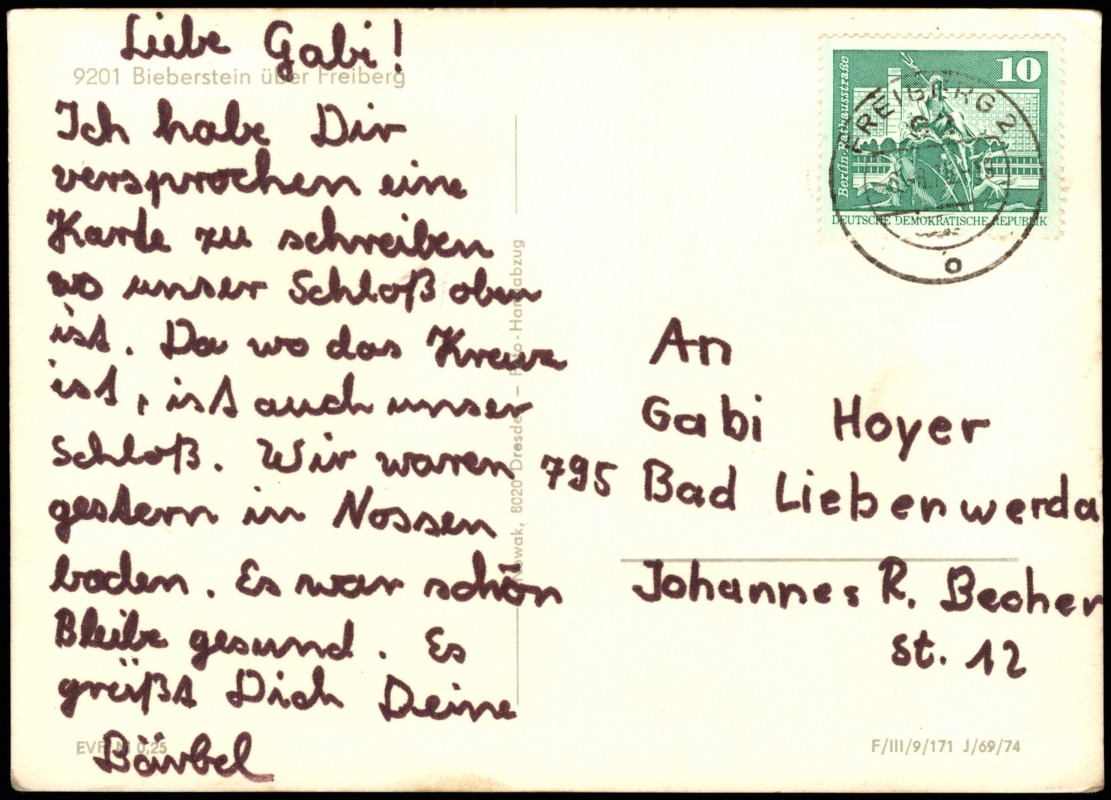 Liebe Gabi!
9201 Bieberstein über Freiberg
Ich habe Dir
versprochen eine
Karte zu schreiben
wo unser Schloß oben
ist. Da wo das Kreuz
ist, ist auch unser
Schloß. Wir waren
gestern in Nossen
baden. Es war schön
Bleibe gesund. Es
grüßt Dich Deine
Bärbel
EVP M 0,25
8020 Dresden – Foto-Handabzug
10
Berlin-Rathausstraße
DEUTSCHE DEMOKRATISCHE REPUBLIK
FREIBERG 2
An
Gabi Hoyer
795 Bad Liebenwerda
Johannes R. Becher
St. 12
F/III/9/171 J/69/74